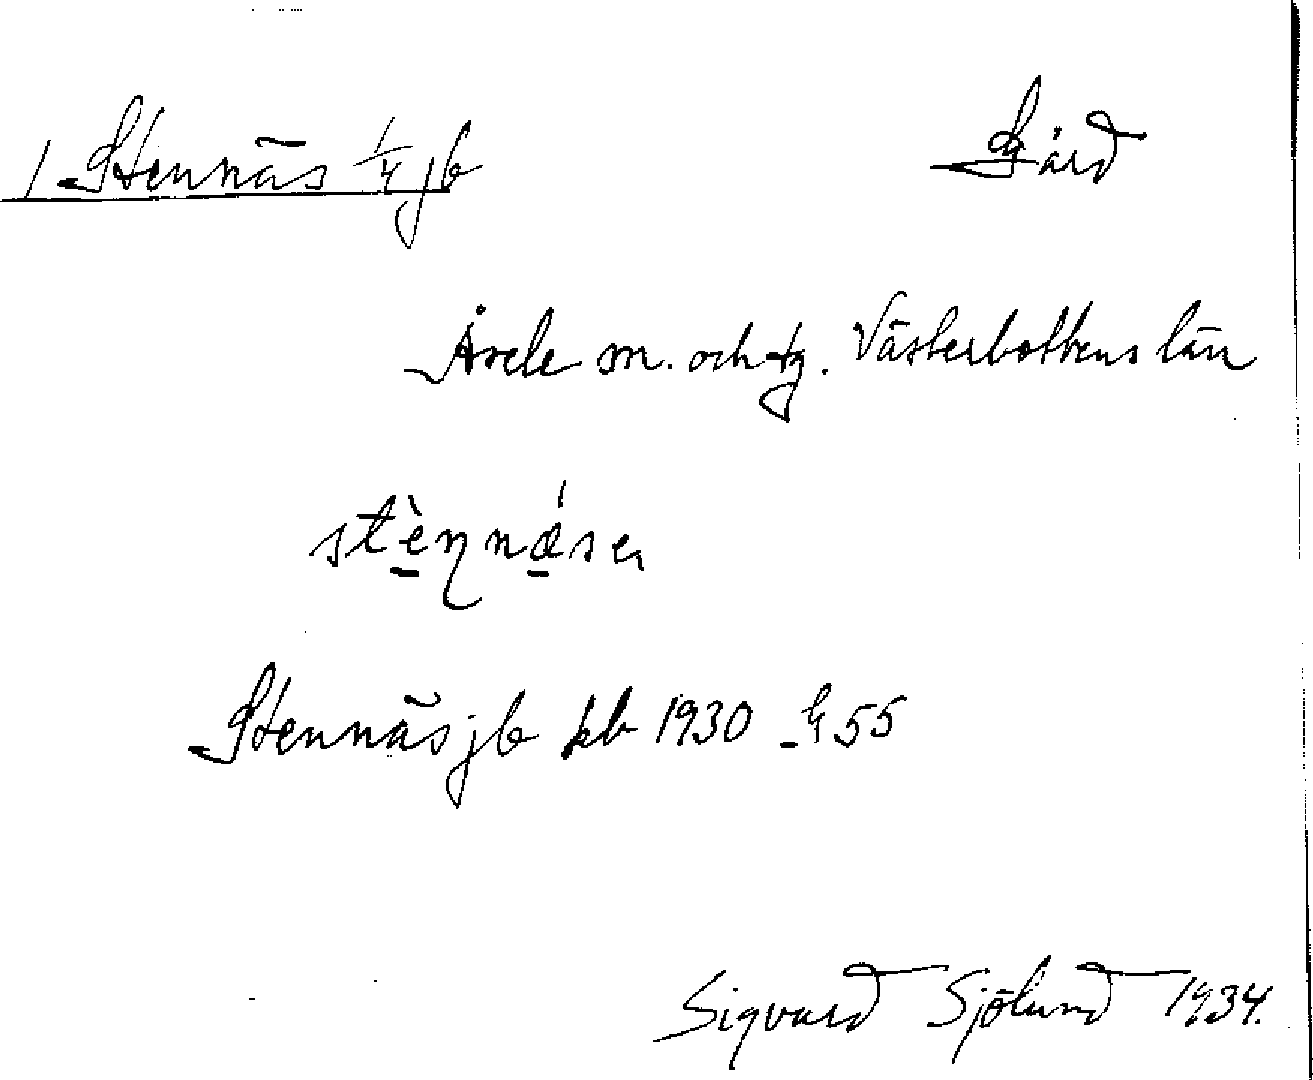 1 Stennäs 1/4 jb Gård
Åsele sn. och tg. Västerbottens län
stènnǽsen
Stennäs jb kb 1930 G 55
Sigvard Sjölund 1934.